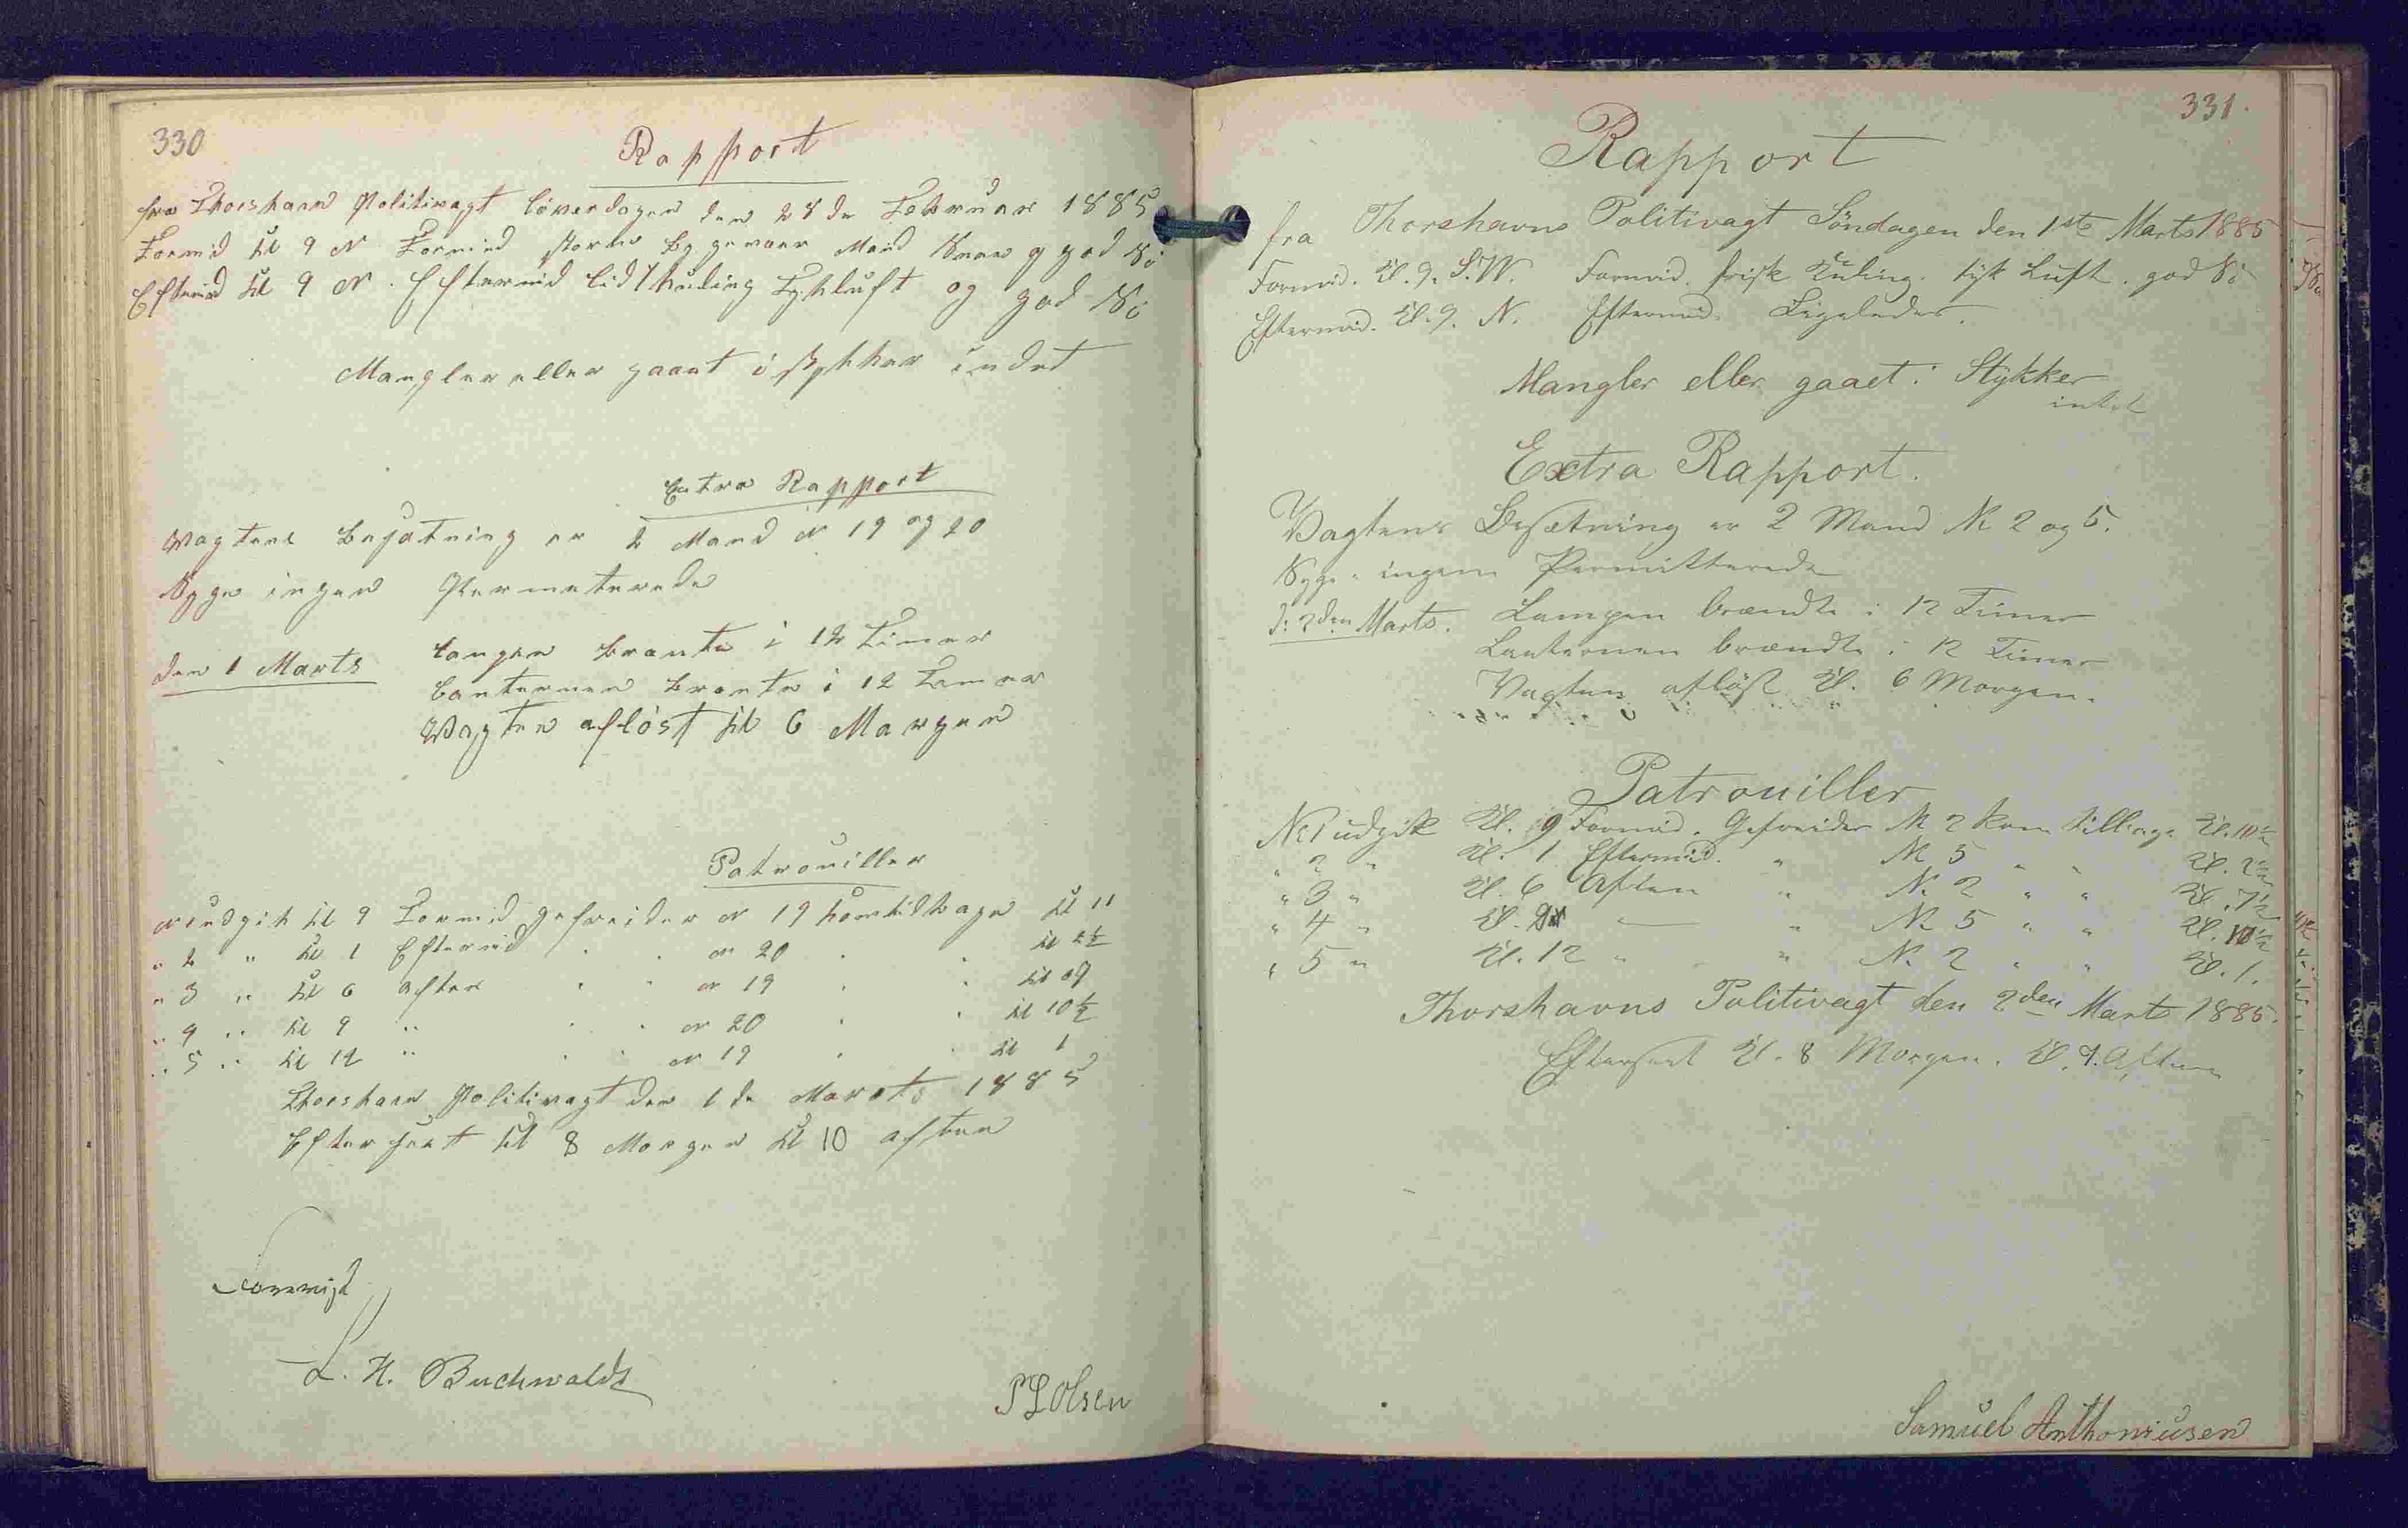 330
Rapport
fra Thorshavn Politivagt Löverdagen den 28de Februar 1885
Formid kl 9 N Formid storm Bygevaar Mand Snee og god Si
Eftermid kl 9 N. Eftermid lidt kuling Tykluft og god Si
Mangler eller gaaet i stykker indet
Extra Rapport
Vagtens besatning er 2 Mand N 19 og 20
Syge ingen Permeterede
den 1 Marts Lampen brante i 12 Timer
Lanternen brante i 12 Timer
Vagten aflöst kl 6 Morgen
Patrouiller
N 1 udgik kl 9 Formid gefreider N 19 kom tilbage kl 11
" 2 " kl 1 Eftermid " " N 20 " " kl 2½
" 3 " kl 6 aften " " N 19 " " kl
" 4 " kl 9 " " " N 20 " " kl 10½
" 5 " kl 12 " " " N 19 " " kl 1
Thorshavn Politivagt den 1de Marts 1885
Efterseet kl 8 Morgen kl 10 aften
Forevist
L. H. Buchwaldt
P L Olsen
331.
Rapport
fra Thorshavns Politivagt Söndagen den 1ste Marts 1885
Formid. Kl. 9. S.W. Formid. frisk Kuling. tyk Luft. god Si
Eftermid. Kl. 9. N. Eftermid. Ligeledes.
Mangler eller gaaet i Stykker
intet
Extra Rapport.
Vagtens Besætning er 2 Mand N. 2 og 5.
Syge " ingen Permitterede
d: 2den Marts. Lampen brændte i 12 Timer
Lanternen brændte i 12 Timer
Vagten aflöst Kl. 6 Morgen.
Patrouiller
N. 1 udgik Kl. 9 Formid. Gefreider N. 2 kom tilbage Kl. 10½
" 2 " Kl. 1 Eftermid. " N. 5 " " Kl. 2½
" 3 " Kl. 6 Aften " N. 2 " " Kl. 7½
" 4 " Kl. 9 — " N. 5 " " Kl. 10½
" 5 " Kl. 12 " " N. 2 " " Kl. 1.
Thorshavns Politivagt den 2den Marts 1885.
Efterseet Kl. 8 Morgen. Kl. 9. Aften
Samuel Anthoniusen